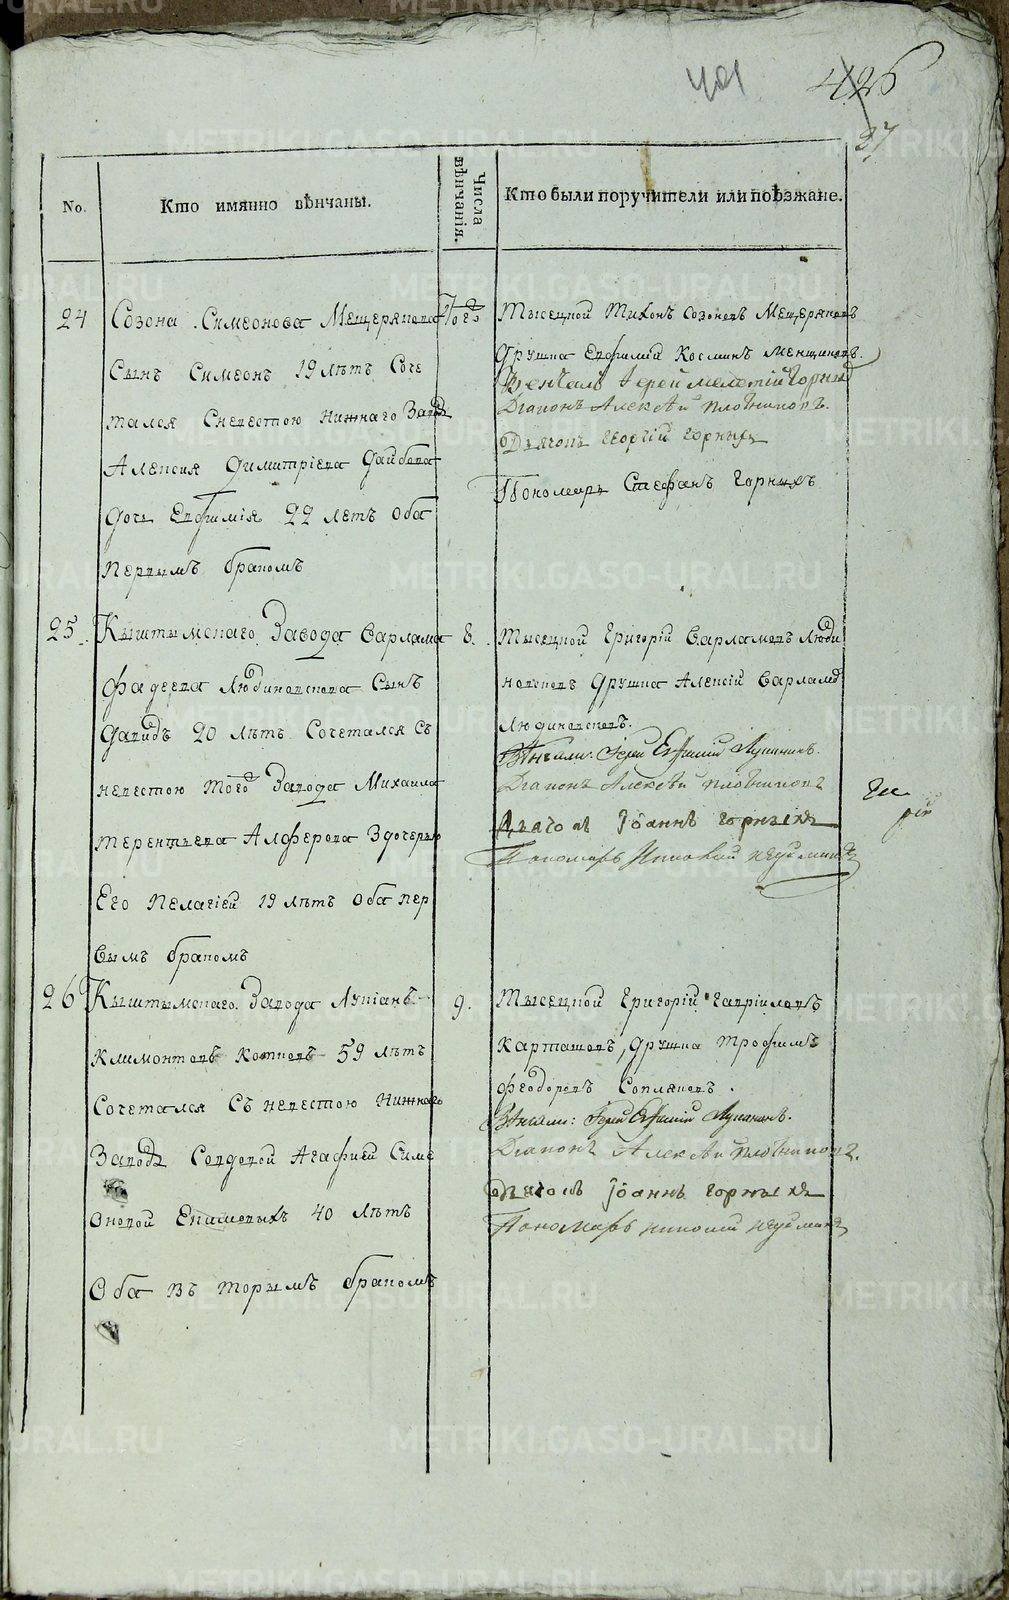 401
426
27
No.
Кто имянно вѣнчаны.
Числа вѣнчанія.
Кто были поручители или поѣзжане.
24
Созона Симеонова Мещерякова
Сынъ Симеонъ 19 лѣтъ Соче
тался Сневестою Нижнаго Завода
Алексия Димитріева
Дочь Евфимія 22 летъ Оба
первымъ бракомъ
7го
Тысецкой Тихонъ Созоновъ Мещеряковъ
Дружка Евфимій Косминъ Менщиковъ.
Венчалъ Іерей Мелетій Горных
Діаконъ Алексѣй Плотниковъ.
Дьячокъ Георгій Горныхъ
Пономарь Стефанъ Горныхъ
25
Кыштымскаго Завода Варлама
Фадеева Людиновскова Сынъ
Давидъ 20 лѣтъ Сочетался съ
невестою Того Завода Михаила
Терентьева Алферова Здочерью
Его Пелагіей 19 лѣтъ Оба пер
вымъ бракомъ
8.
Тысецкой Григорій Варламовъ Люди
новсковъ Дружка Алексій Варламовъ
Людиновсковъ.
Вѣнчали: Іерей Евфимій
Діаконъ Алексѣй Плотниковъ
Дьячокъ Іоаннъ Горныхъ
Пономарь
26
Кыштымскаго Завода Лукіанъ
Климонтовъ Котковъ 59 лѣтъ
Сочетался съ невестою Нижнаго
Завода Вдовой Агафией Симе
оновой Екимовыхъ 40 лѣтъ
Оба вторымъ бракомъ
9.
Тысецкой Григорій Гавріиловъ
Карташовъ, Дружка Трофимъ
Феодоровъ Сопляковъ.
Вѣнчали: Іерей Евфимій
Діаконъ Алексѣй Плотниковъ.
Дьячокъ Іоаннъ Горныхъ
Пономарь
METRIKI.GASO-URAL.RU